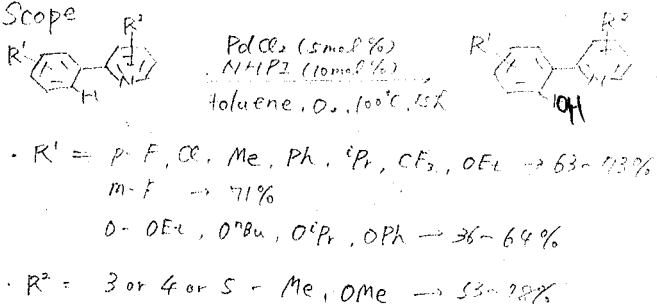 Scope
R¹ R² N H
PdCl₂ (5mol%)
NHPI (10mol%)
toluene, O₂, 100°C, 15h
R¹ R² N OH
· R¹ = p- F, Cl, Me, Ph, ⁱPr, CF₃, OEt →
m-F → 71%
o- OEt, OⁿBu, OⁱPr, OPh → 36~64%
· R² = 3 or 4 or 5 - Me, OMe →